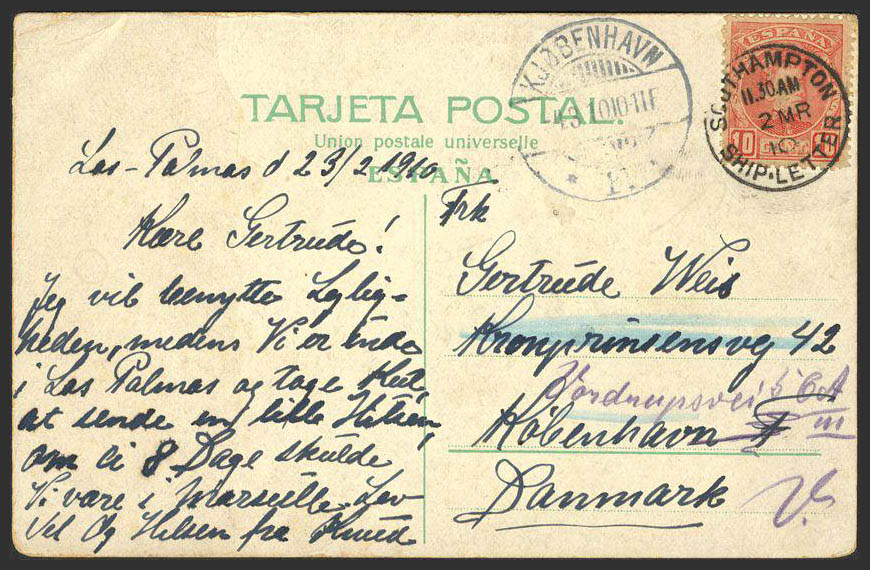 TARJETA POSTAL.
Union postale universelle
ESPAÑA
KJØBENHAVN
4.3.10 10-11F
ESPAÑA
10
SOUTHAMPTON
11.30AM
2 MR
10
SHIP-LETTER
Las-Palmas d 23/2 1910
Kære Gertrude!
Jeg vil benytte Leylig=
heden, medens Vi er inde
i Las Palmas og tage
at sende en lille Hilsen,
om ei 8 Dage skulde
Vi være i Marseille. Lev
Vel Og Hilsen fra Knud
Frk
Gertrude Weis
Kronprinsensvej 42
Nordrupsvei 6A
III
København F
Danmark